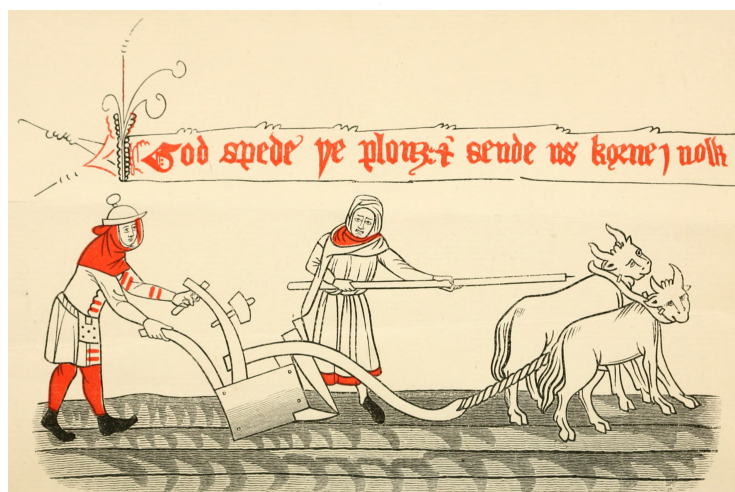 God spede ye plouȝ: & sende us korne j nolk